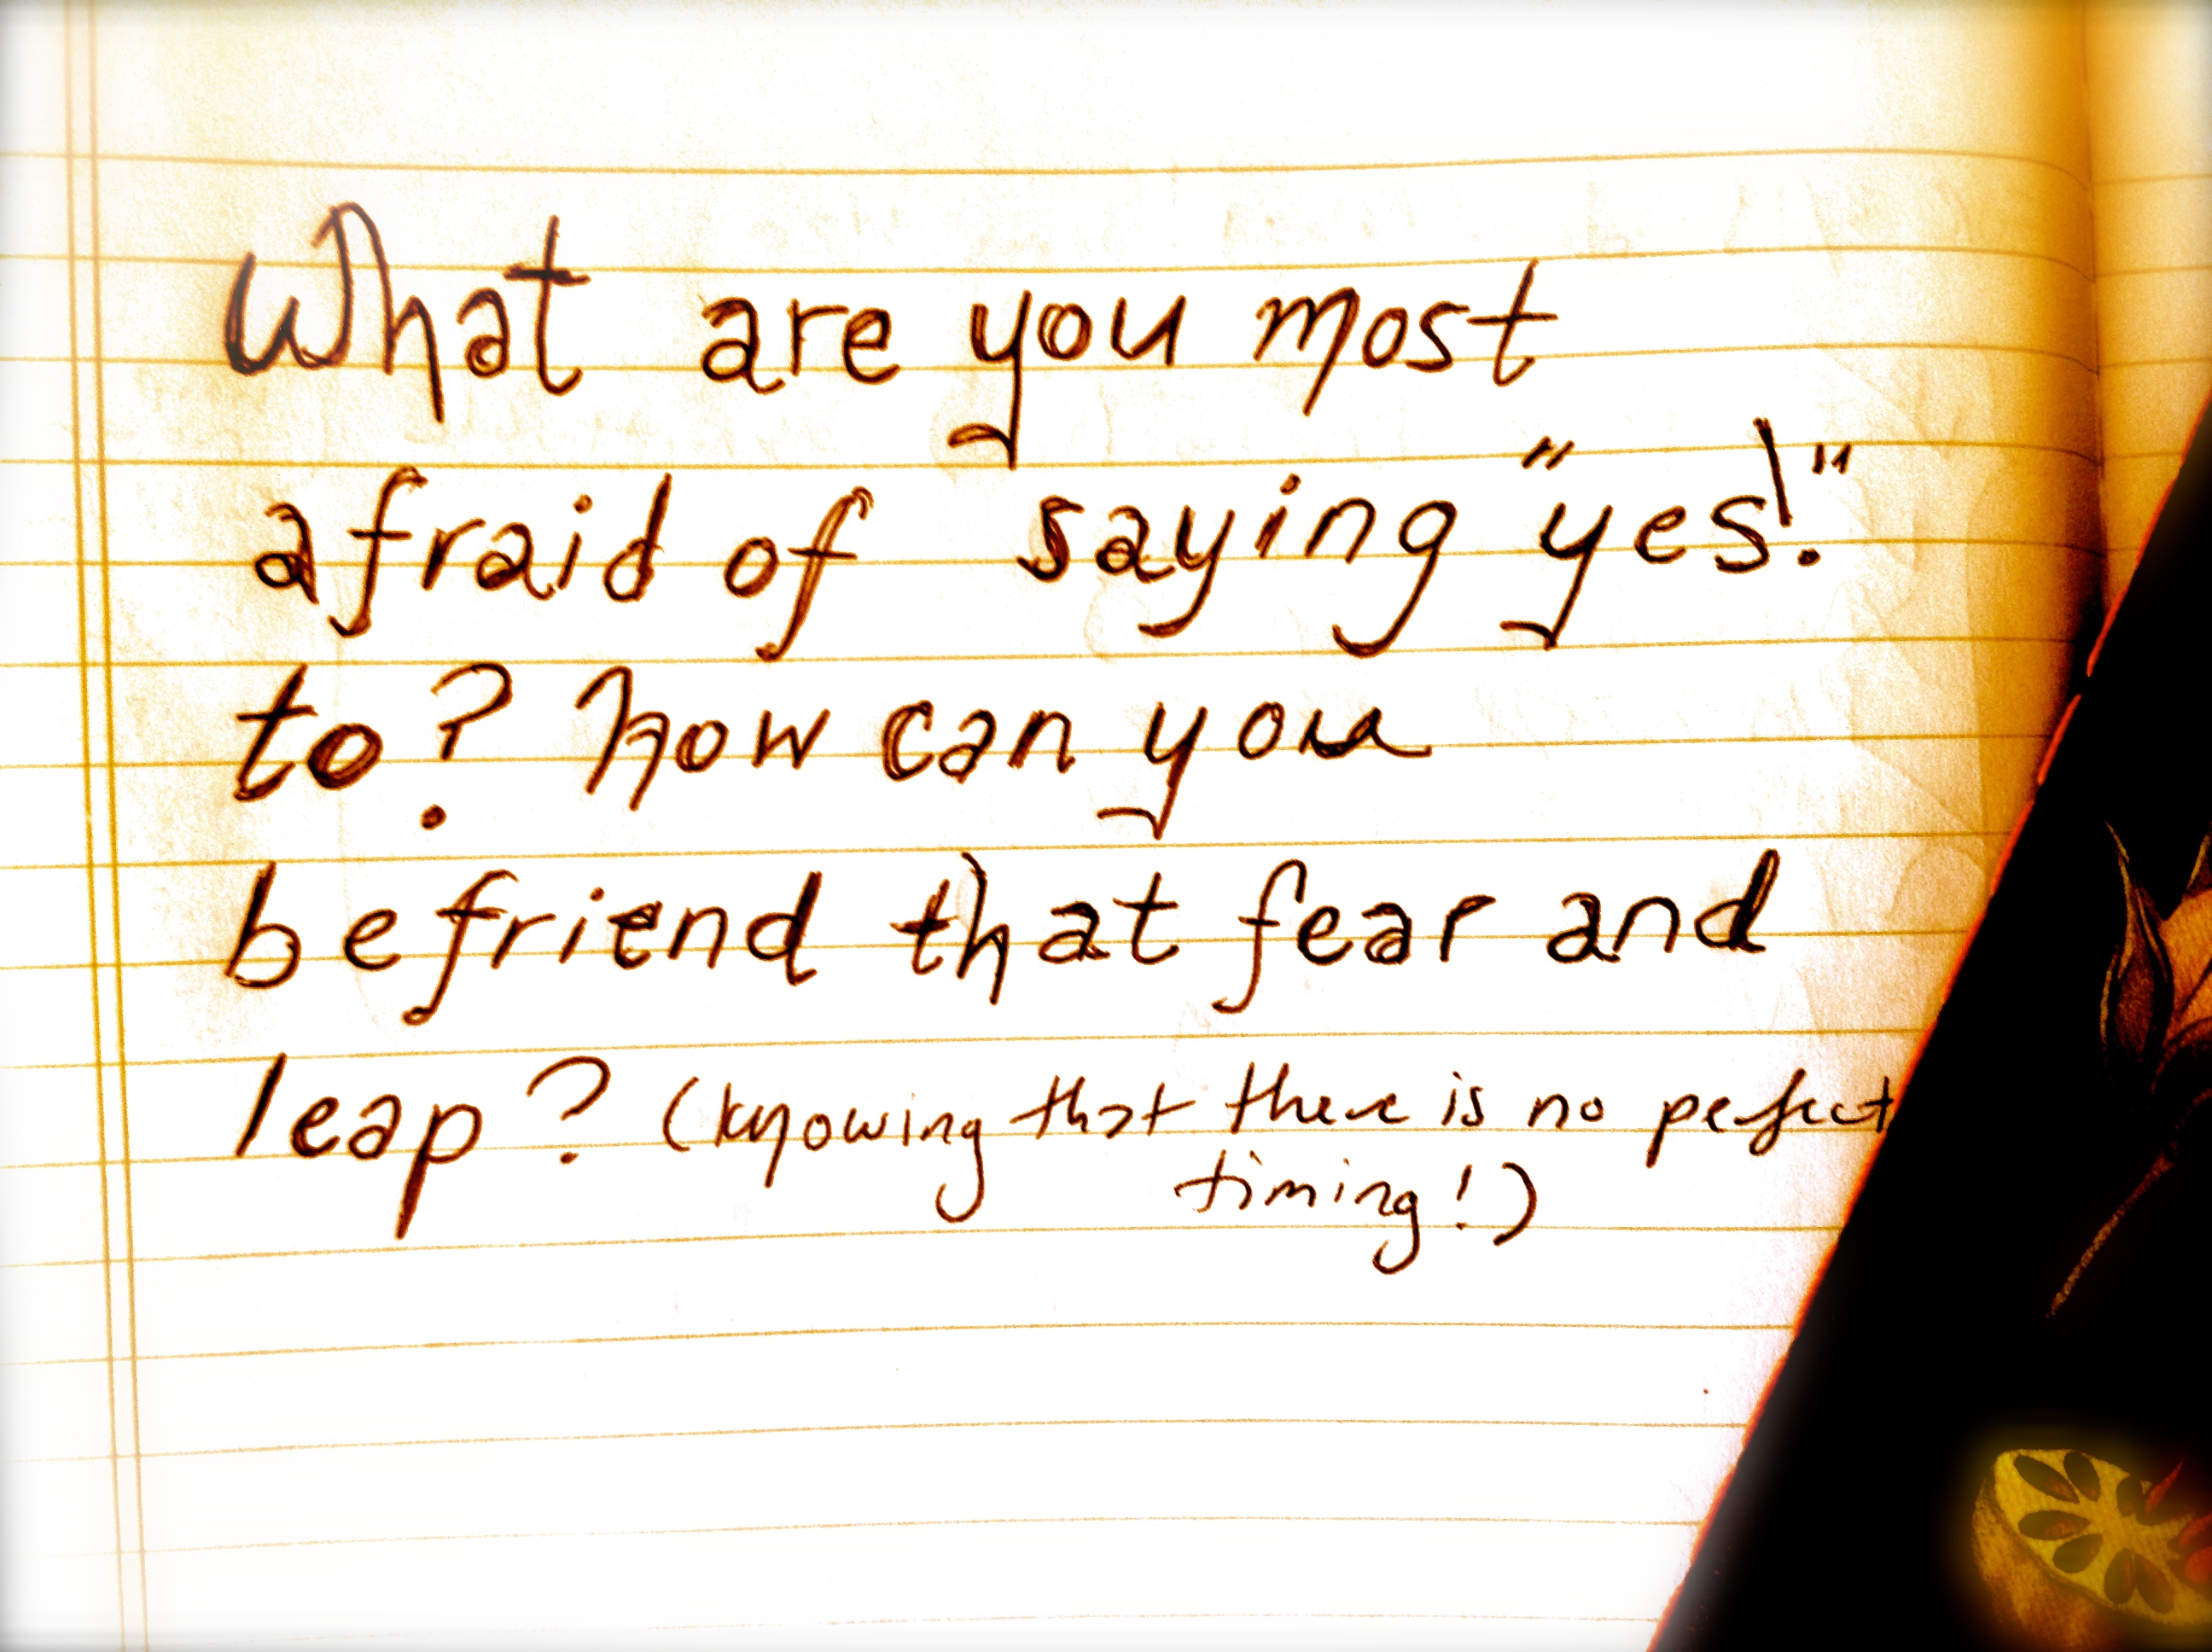 What are you most
afraid of saying "yes!"
to? how can you
befriend that fear and
leap? (knowing that there is no perfect
timing!)